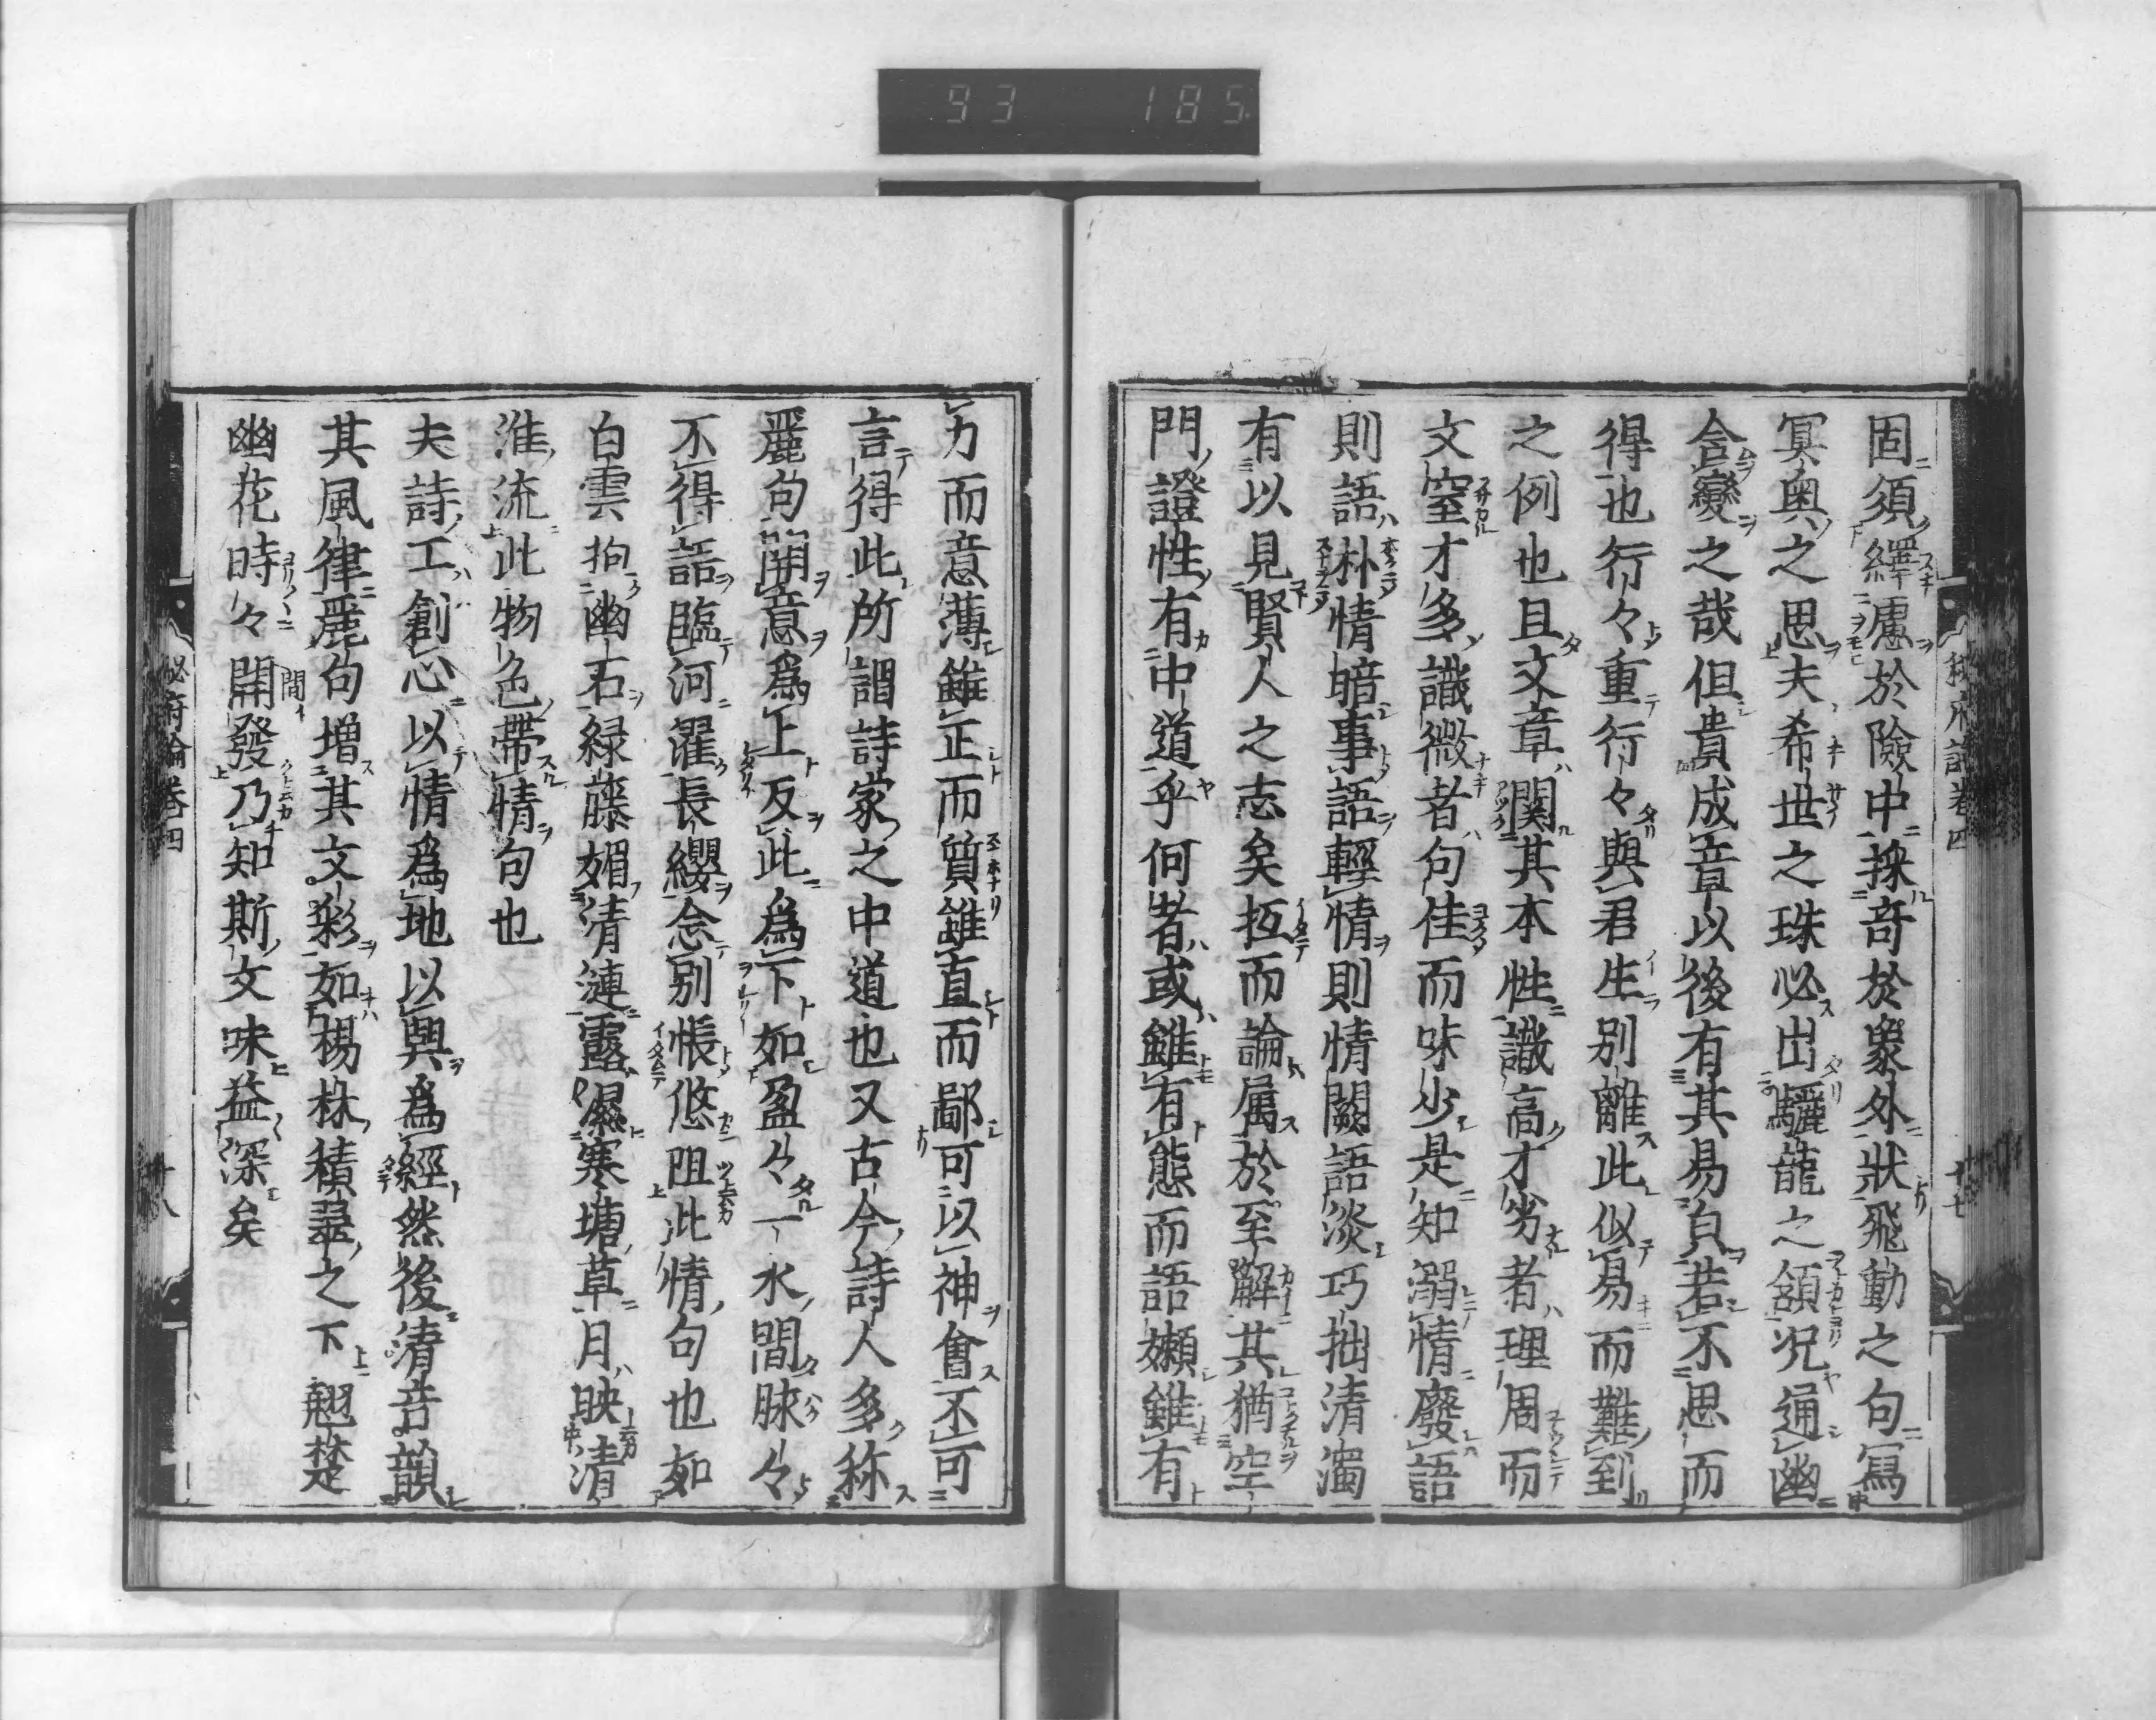 93 185
固須繹慮於險中採奇於象外狀飛動之句寫
冥奧之思夫希世之珠必出驪龍之頷况通幽
含變之哉但貴成章以後有其易皃若不思而
得也行々重行々與君生別離此似易而難到
之例也且文章關其本性識高才劣者理周而
文窒才多識微者句佳而味少是知溺情廢語
則語朴情暗事語輕情則情闕語淡巧拙清濁
有以見賢人之志矣抵而論属於至解其猶空
門證性有中道乎何者或雖有態而語嬾雖有
力而意薄雖正而質雖直而鄙可以神會不可
言得此所謂詩家之中道也又古今詩人多称
麗句開意爲上反此爲下如盈々一水間脉々
不得語臨河濯長纓念別悵悠阻此情句也如
白雲抱幽石緑藤媚清漣露濕寒塘草月映清
淮流此物色帶情句也
夫詩工創心以情爲地以興爲經然後清音韻
其風律麗句增其文彩如楊林積翠之下翹楚
幽花時々開發乃知斯文味益深矣
間イ
秘府論卷四
十七
秘府論卷四
十八